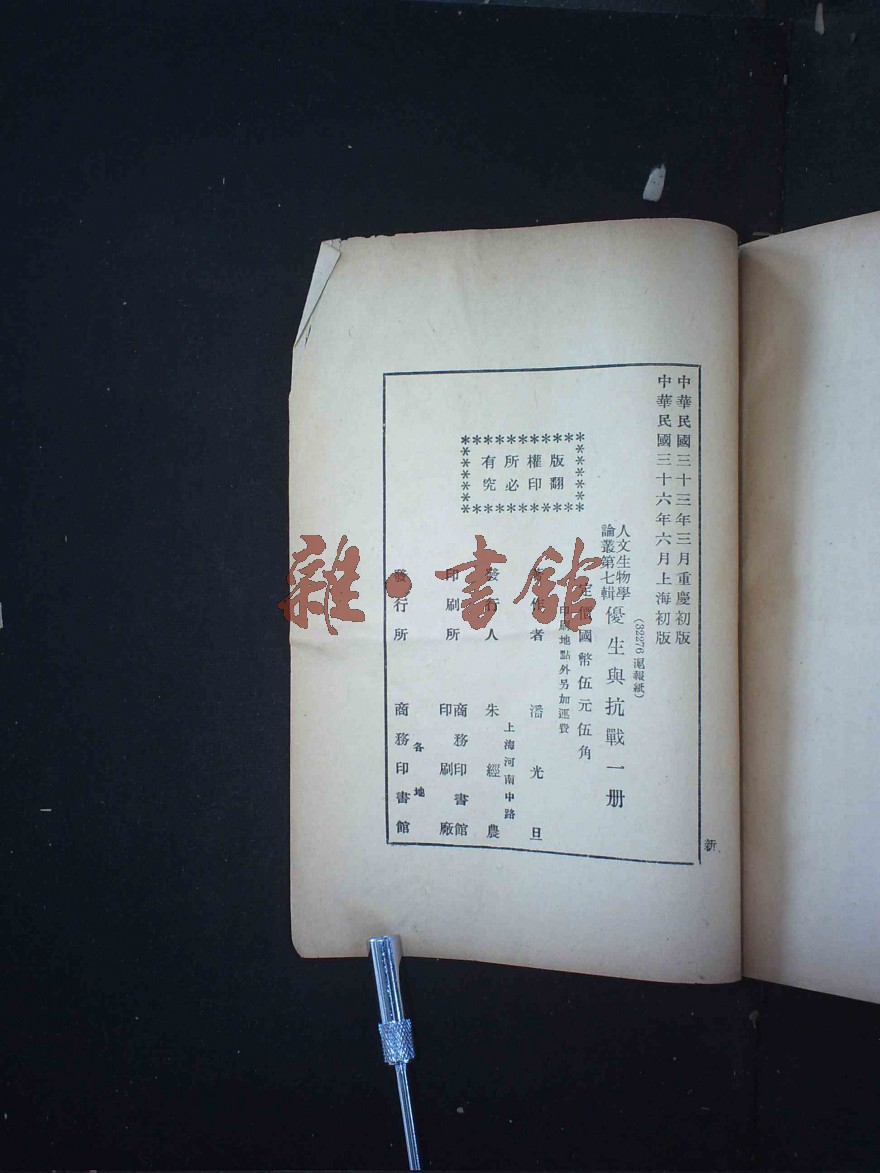 中華民國三十三年三月重慶初版
中華民國三十六年六月上海初版
(32276 滬報紙)
人文生物學
論叢第七輯
優生與抗戰一册
定價國幣伍元伍角
印刷地點外另加運費
版權所有
翻印必究
著作者 潘光旦
上海河南中路
發行人 朱經農
印刷所 商務印書館
印刷廠
各地
發行所 商務印書館
新
雜·書館